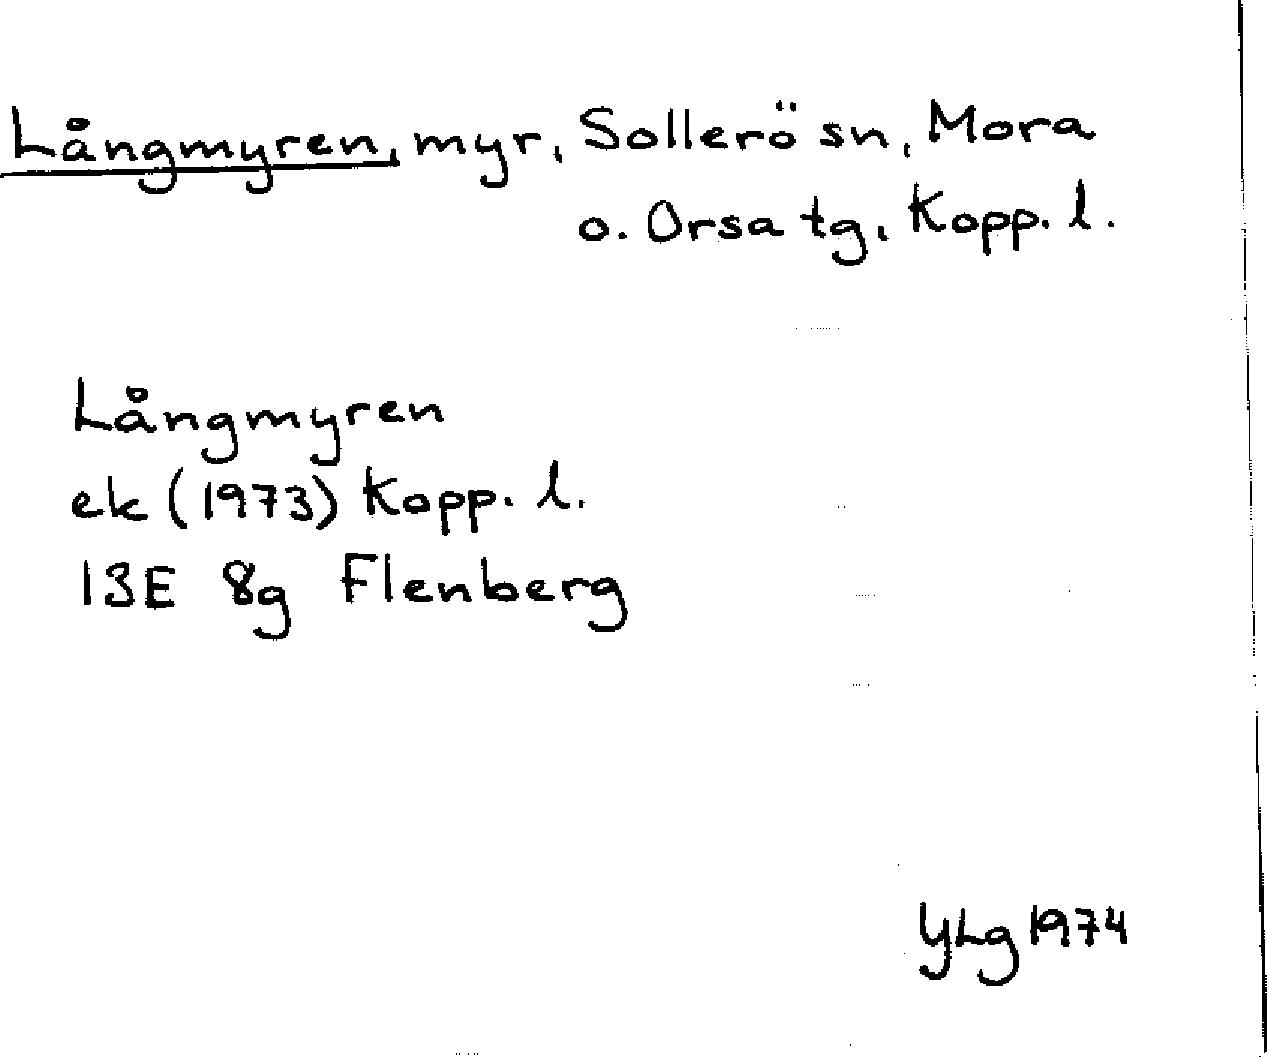 Långmyren, myr, Sollerö sn, Mora
o. Orsa tg, Kopp. l.
Långmyren
ek (1973) Kopp. l.
13E 8g Flenberg
YLg 1974